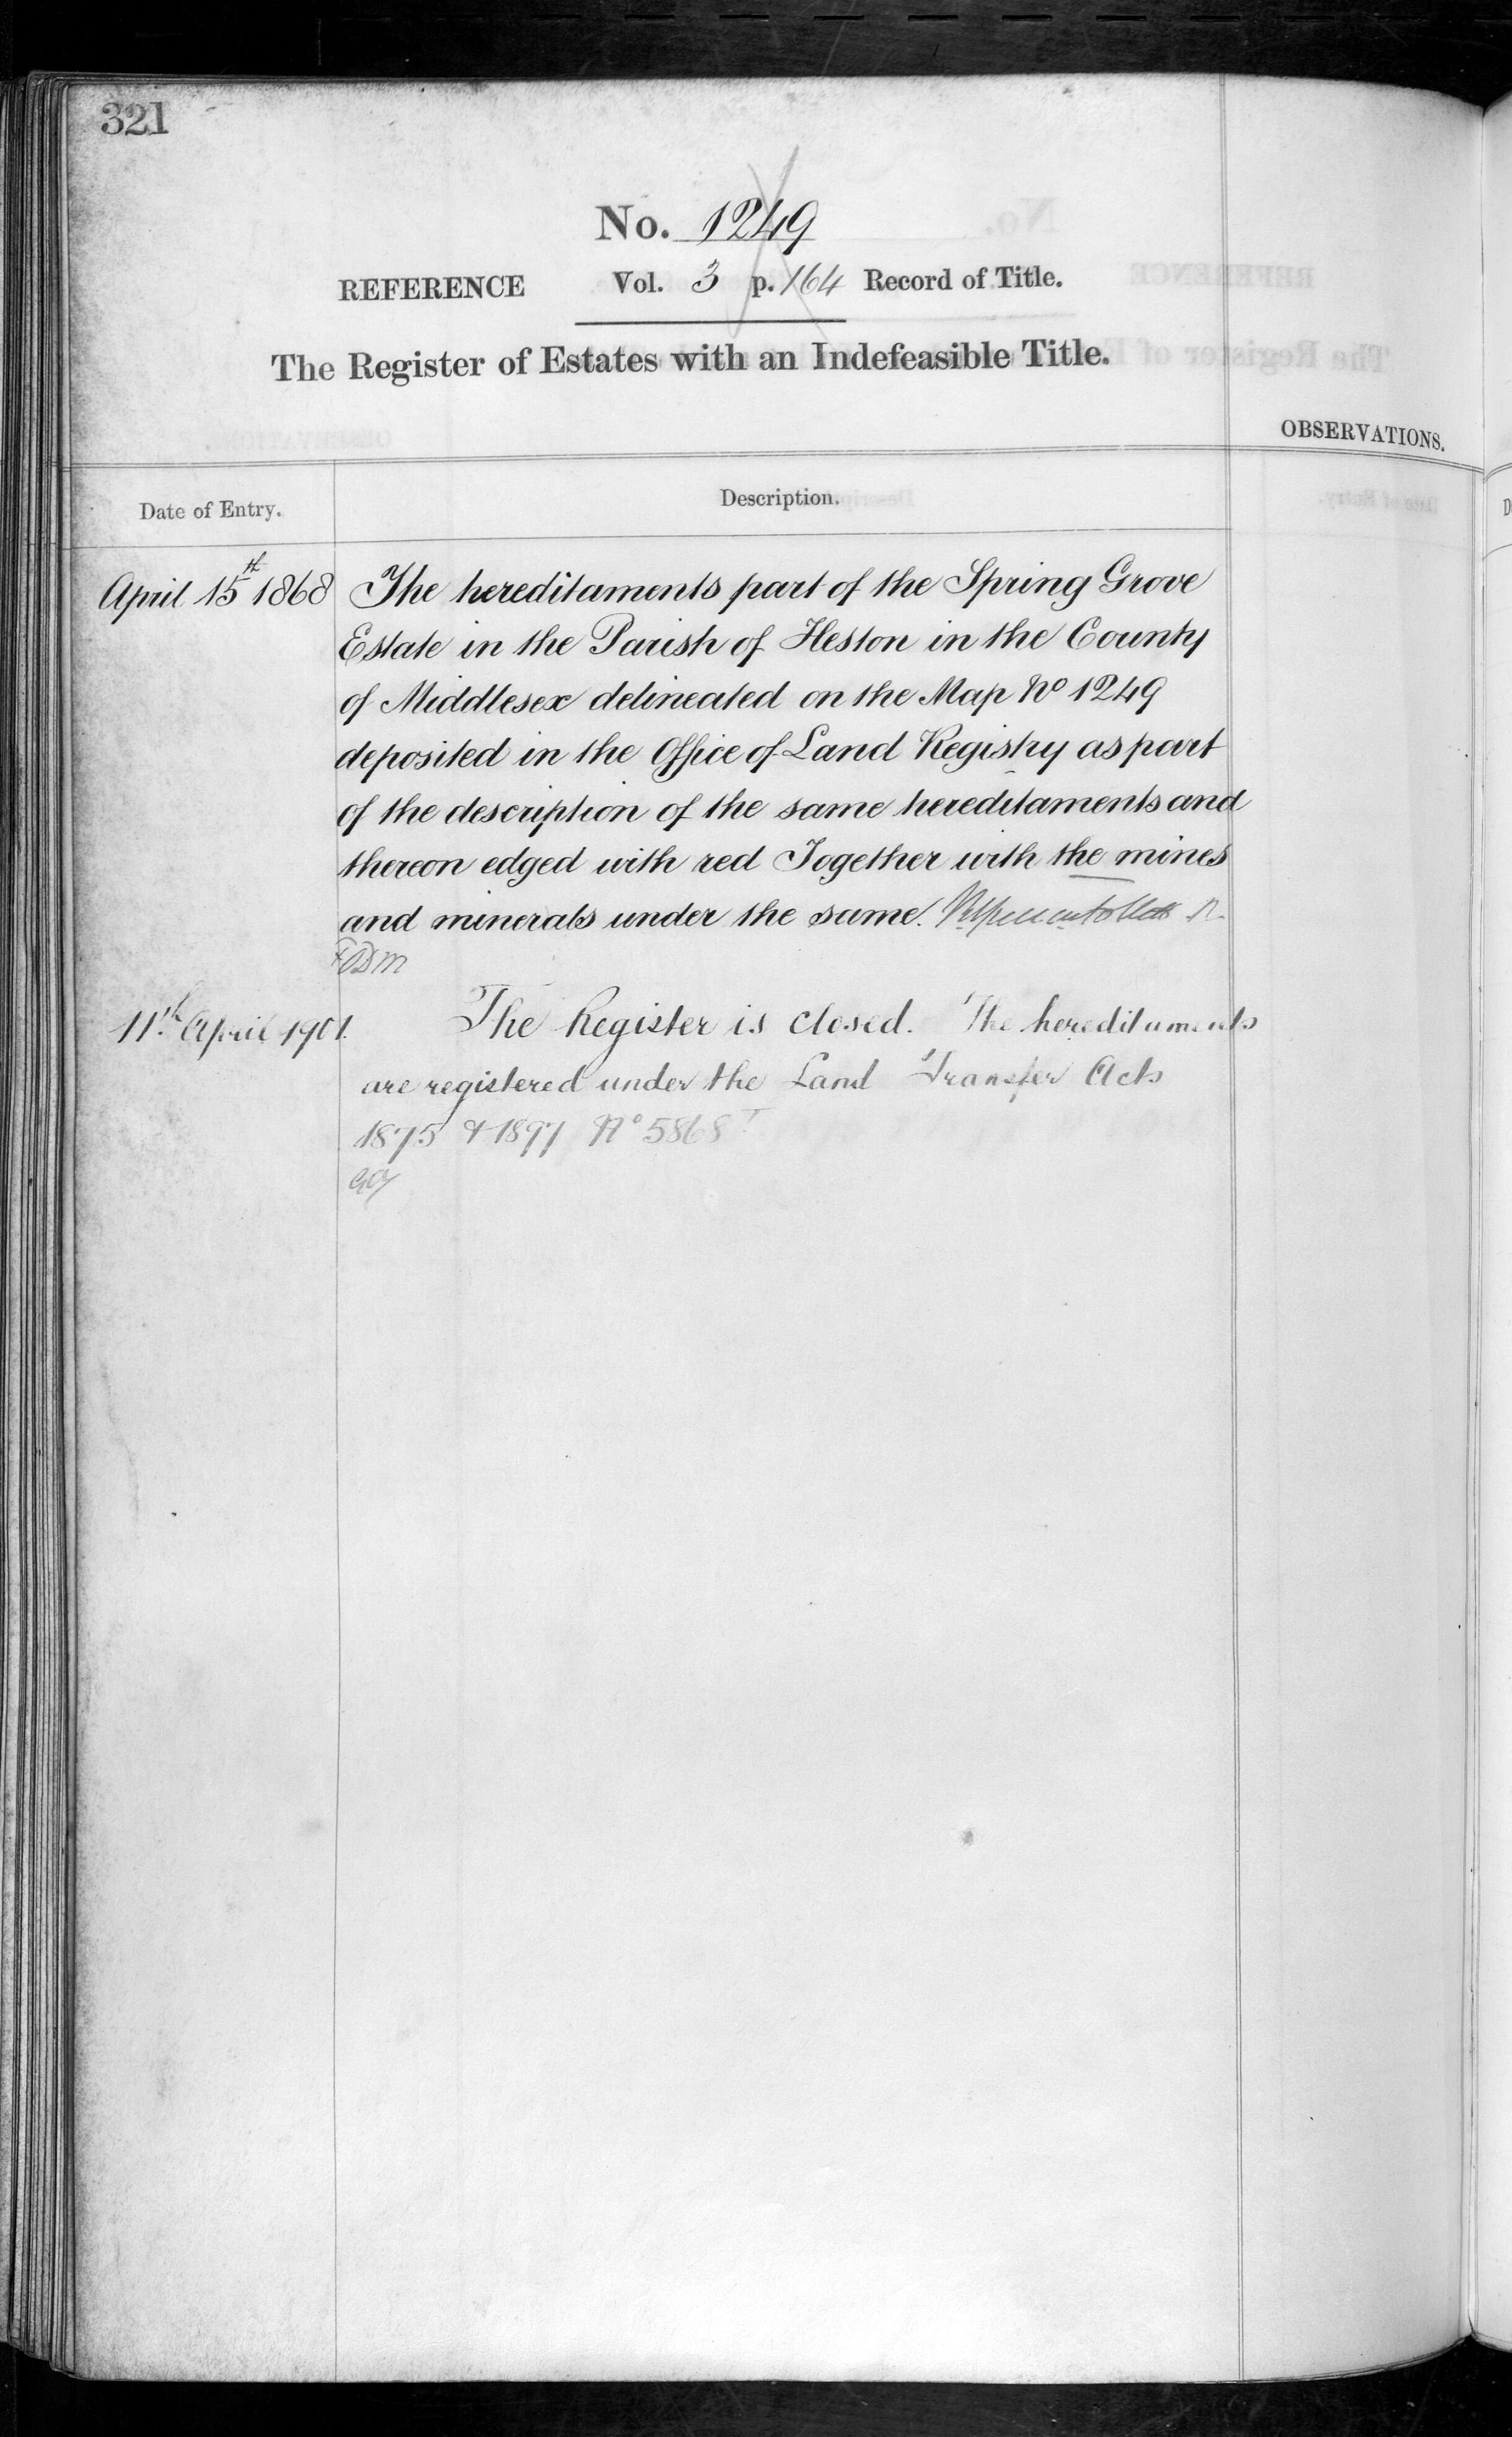 321
No. 1249
REFERENCE Vol. 3 p. 164 Record of Title.
The Register of Estates with an Indefeasible Title.
OBSERVATIONS.
Date of Entry. Description.
April 15th 1868 The hereditaments part of the Spring Grove
Estate in the Parish of Heston in the County
of Middlesex delineated on the Map No 1249
deposited in the Office of Land Registry as part
of the description of the same hereditaments and
thereon edged with red Together with the mines
and minerals under the same.
11th April 1901. The Register is closed. The hereditaments
are registered under the Land Transfer Acts
1875 & 1897 No 5868